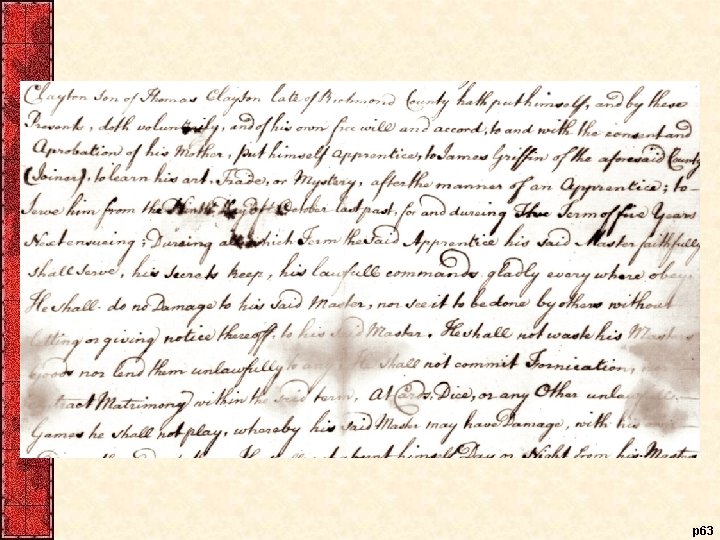 Clayton son of Thomas Clayton late of Richmond County hath put himself, and by these
Presents, doth voluntarily, and of his own free will and accord, to and with the consent and
Aprobation of his Mother, put himself apprentice, to James Griffin of the aforesaid County
(Joiner), to learn his art, Trade, or Mystery, after the manner of an Apprentice; to
Serve him from the Day of October last past, for and dureing The Term of five Years
Next ensueing; Dureing all which Term the Said Apprentice his said Master faithfully
shall Serve, his Secrets keep, his lawfull commands gladly every where obey
He shall do no Damage to his said Master, nor see it to be done by others without
letting or giving notice thereoff, to his said Master. He shall not waste his Masters
Goods nor lend them unlawfully to any He shall not commit Fornication, nor
Contract Matrimony within the said term. At Cards, Dice, or any Other unlawfull
Games he shall not play, whereby his said Master may have Damage, with his own
himself Day or Night from his Master
p63